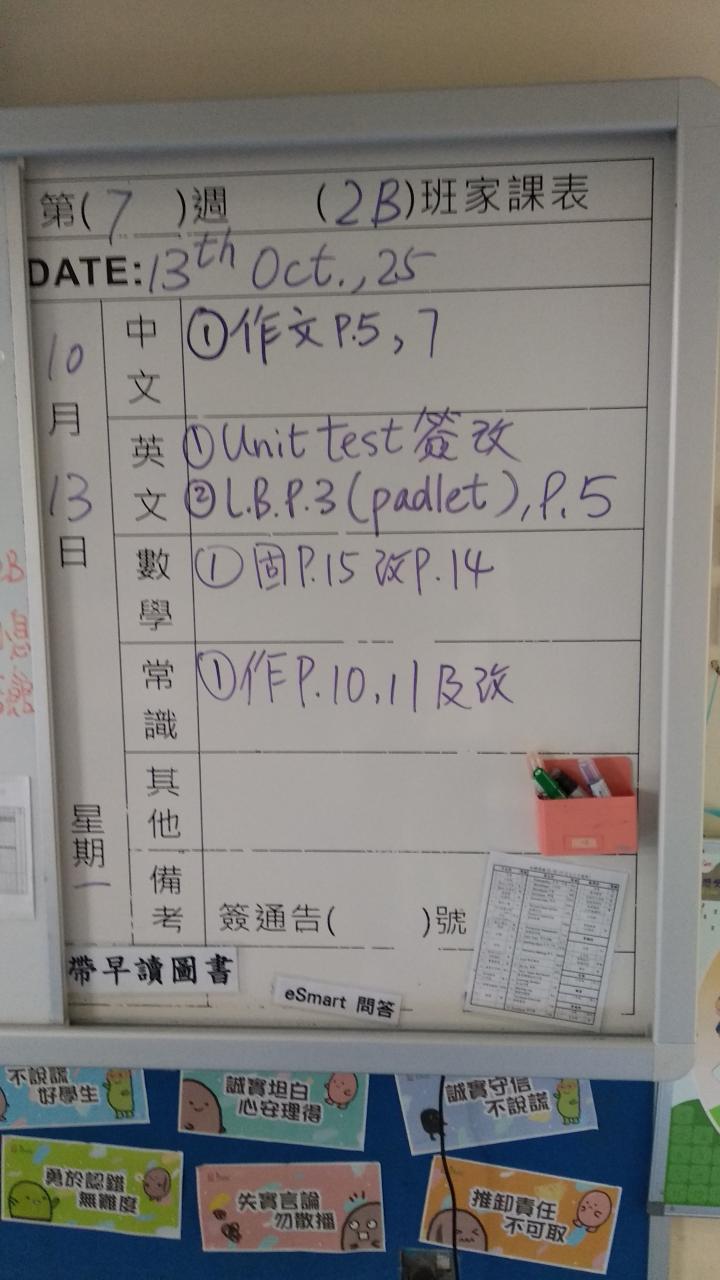 第(7)週 (2B)班家課表
DATE:13th Oct.,25
10月13日
星期一
中文
①作文P.5,7
英文
①Unit test簽改
②L.B.P.3(padlet),P.5
數學
①固P.15改P.14
常識
①作P.10,11及改
其他
備考
簽通告( )號
帶早讀圖書
eSmart 問答
不說謊
好學生
誠實坦白
心安理得
誠實守信
不說謊
勇於認錯
無難度
失實言論
勿散播
推卸責任
不可取